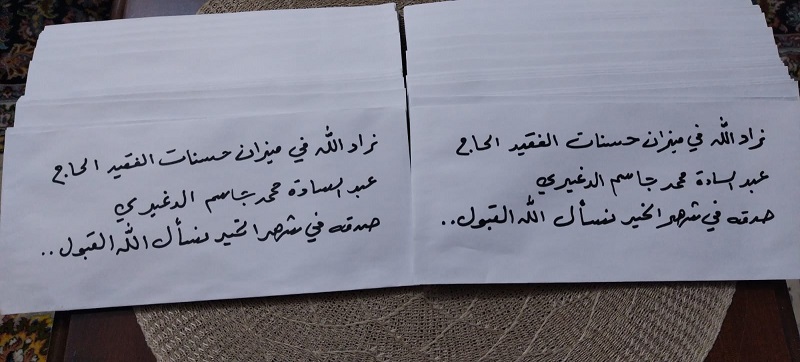 زاد الله في ميزان حسنات الفقيد الحاج
عبد السادة محمد جاسم الدغيري
صدقه في شهر الخير نسأل الله القبول..
زاد الله في ميزان حسنات الفقيد الحاج
عبد السادة محمد جاسم الدغيري
صدقه في شهر الخير نسأل الله القبول..